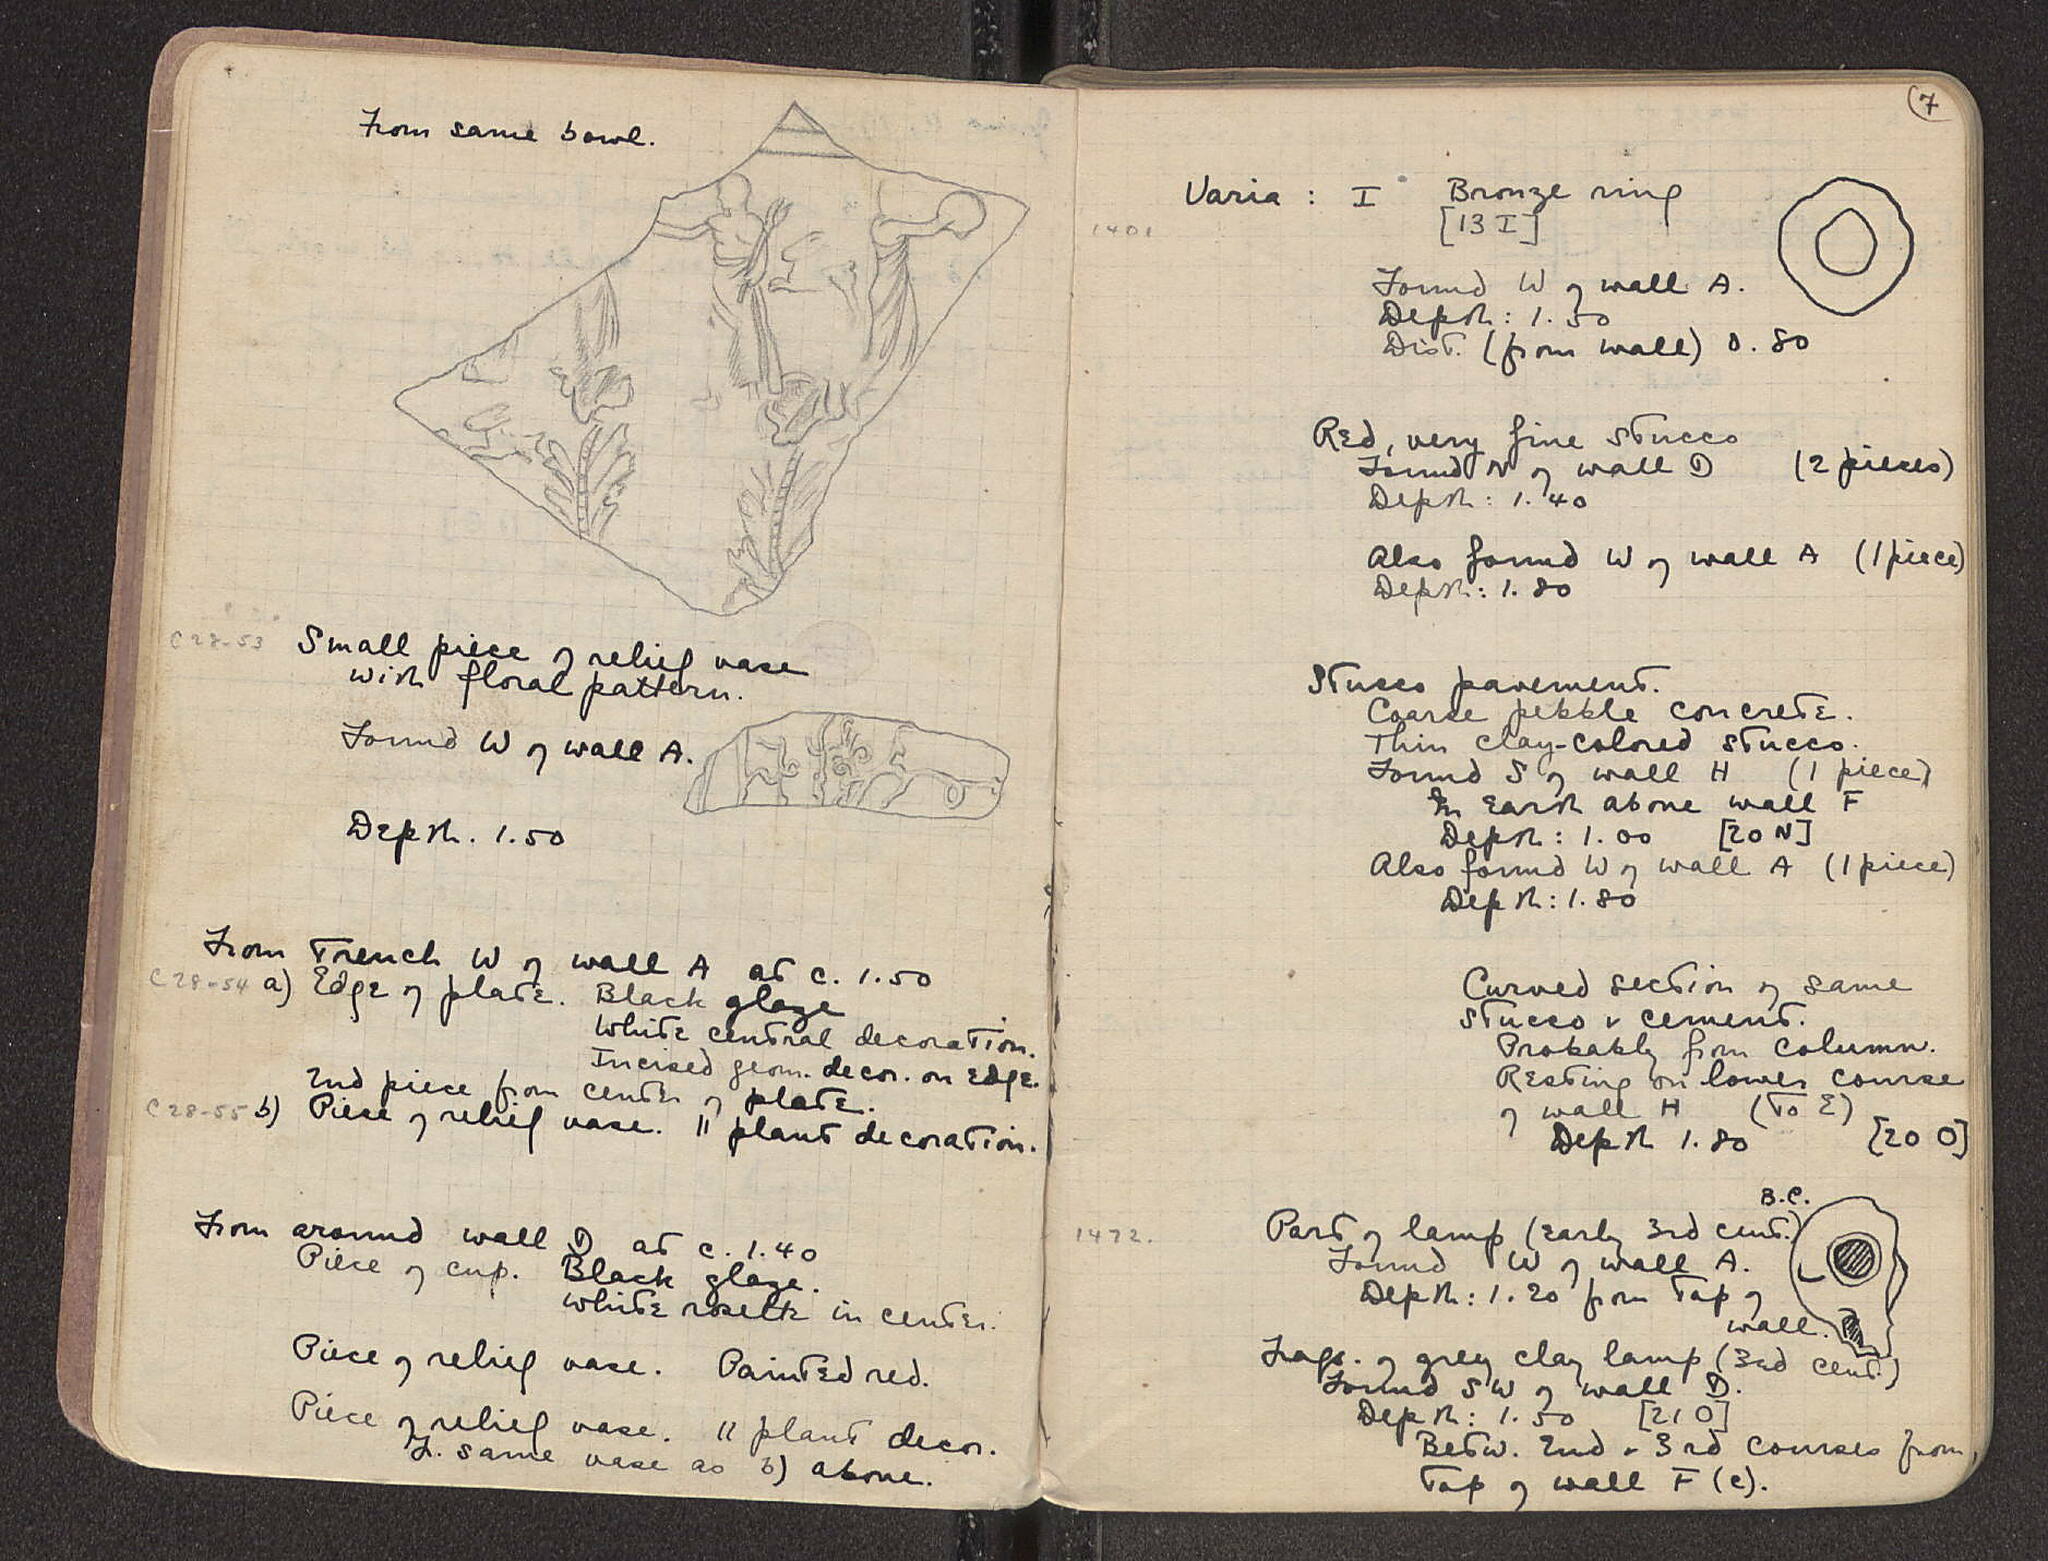 From same bowl.
C 28-53 Small piece of relief vase
with floral pattern.
Found W of wall A.
Depth. 1.50
From Trench W of wall A at c. 1.50
C 28-54 a) Edge of plate. Black glaze
White central decoration.
Incised geom. decor. on edge.
2nd piece from center of plate.
C 28-55 b) Piece of relief vase. || plant decoration.
From around wall D at c. 1.40
Piece of cup. Black glaze.
White rosette in center.
Piece of relief vase. Painted red.
Piece of relief vase. || plant decor.
F. same vase as b) above.
7
Varia : I Bronze ring
1401 [13 I]
Found W of wall A.
Depth: 1.50
Dist. (from wall) 0.80
Red, very fine stucco
Found N of wall D (2 pieces)
Depth: 1.40
Also found W of wall A (1 piece)
Depth: 1.80
Stucco pavement.
Coarse pebble concrete.
Thin clay-colored stucco.
Found S of wall H (1 piece)
In earth above wall F
Depth: 1.00 [20 N]
Also found W of wall A (1 piece)
Depth: 1.80
Curved section of same
stucco & cement.
Probably from column.
Resting on lower course
of wall H (To E)
Depth 1.80 [20 O]
B.C.
1472. Part of lamp (early 3rd cent.)
Found W of wall A.
Depth: 1.20 from top of
wall.
Frags. of grey clay lamp (3rd cent.)
Found SW of wall D.
Depth: 1.50 [21 O]
Betw. 2nd & 3rd courses from
top of wall F (c).